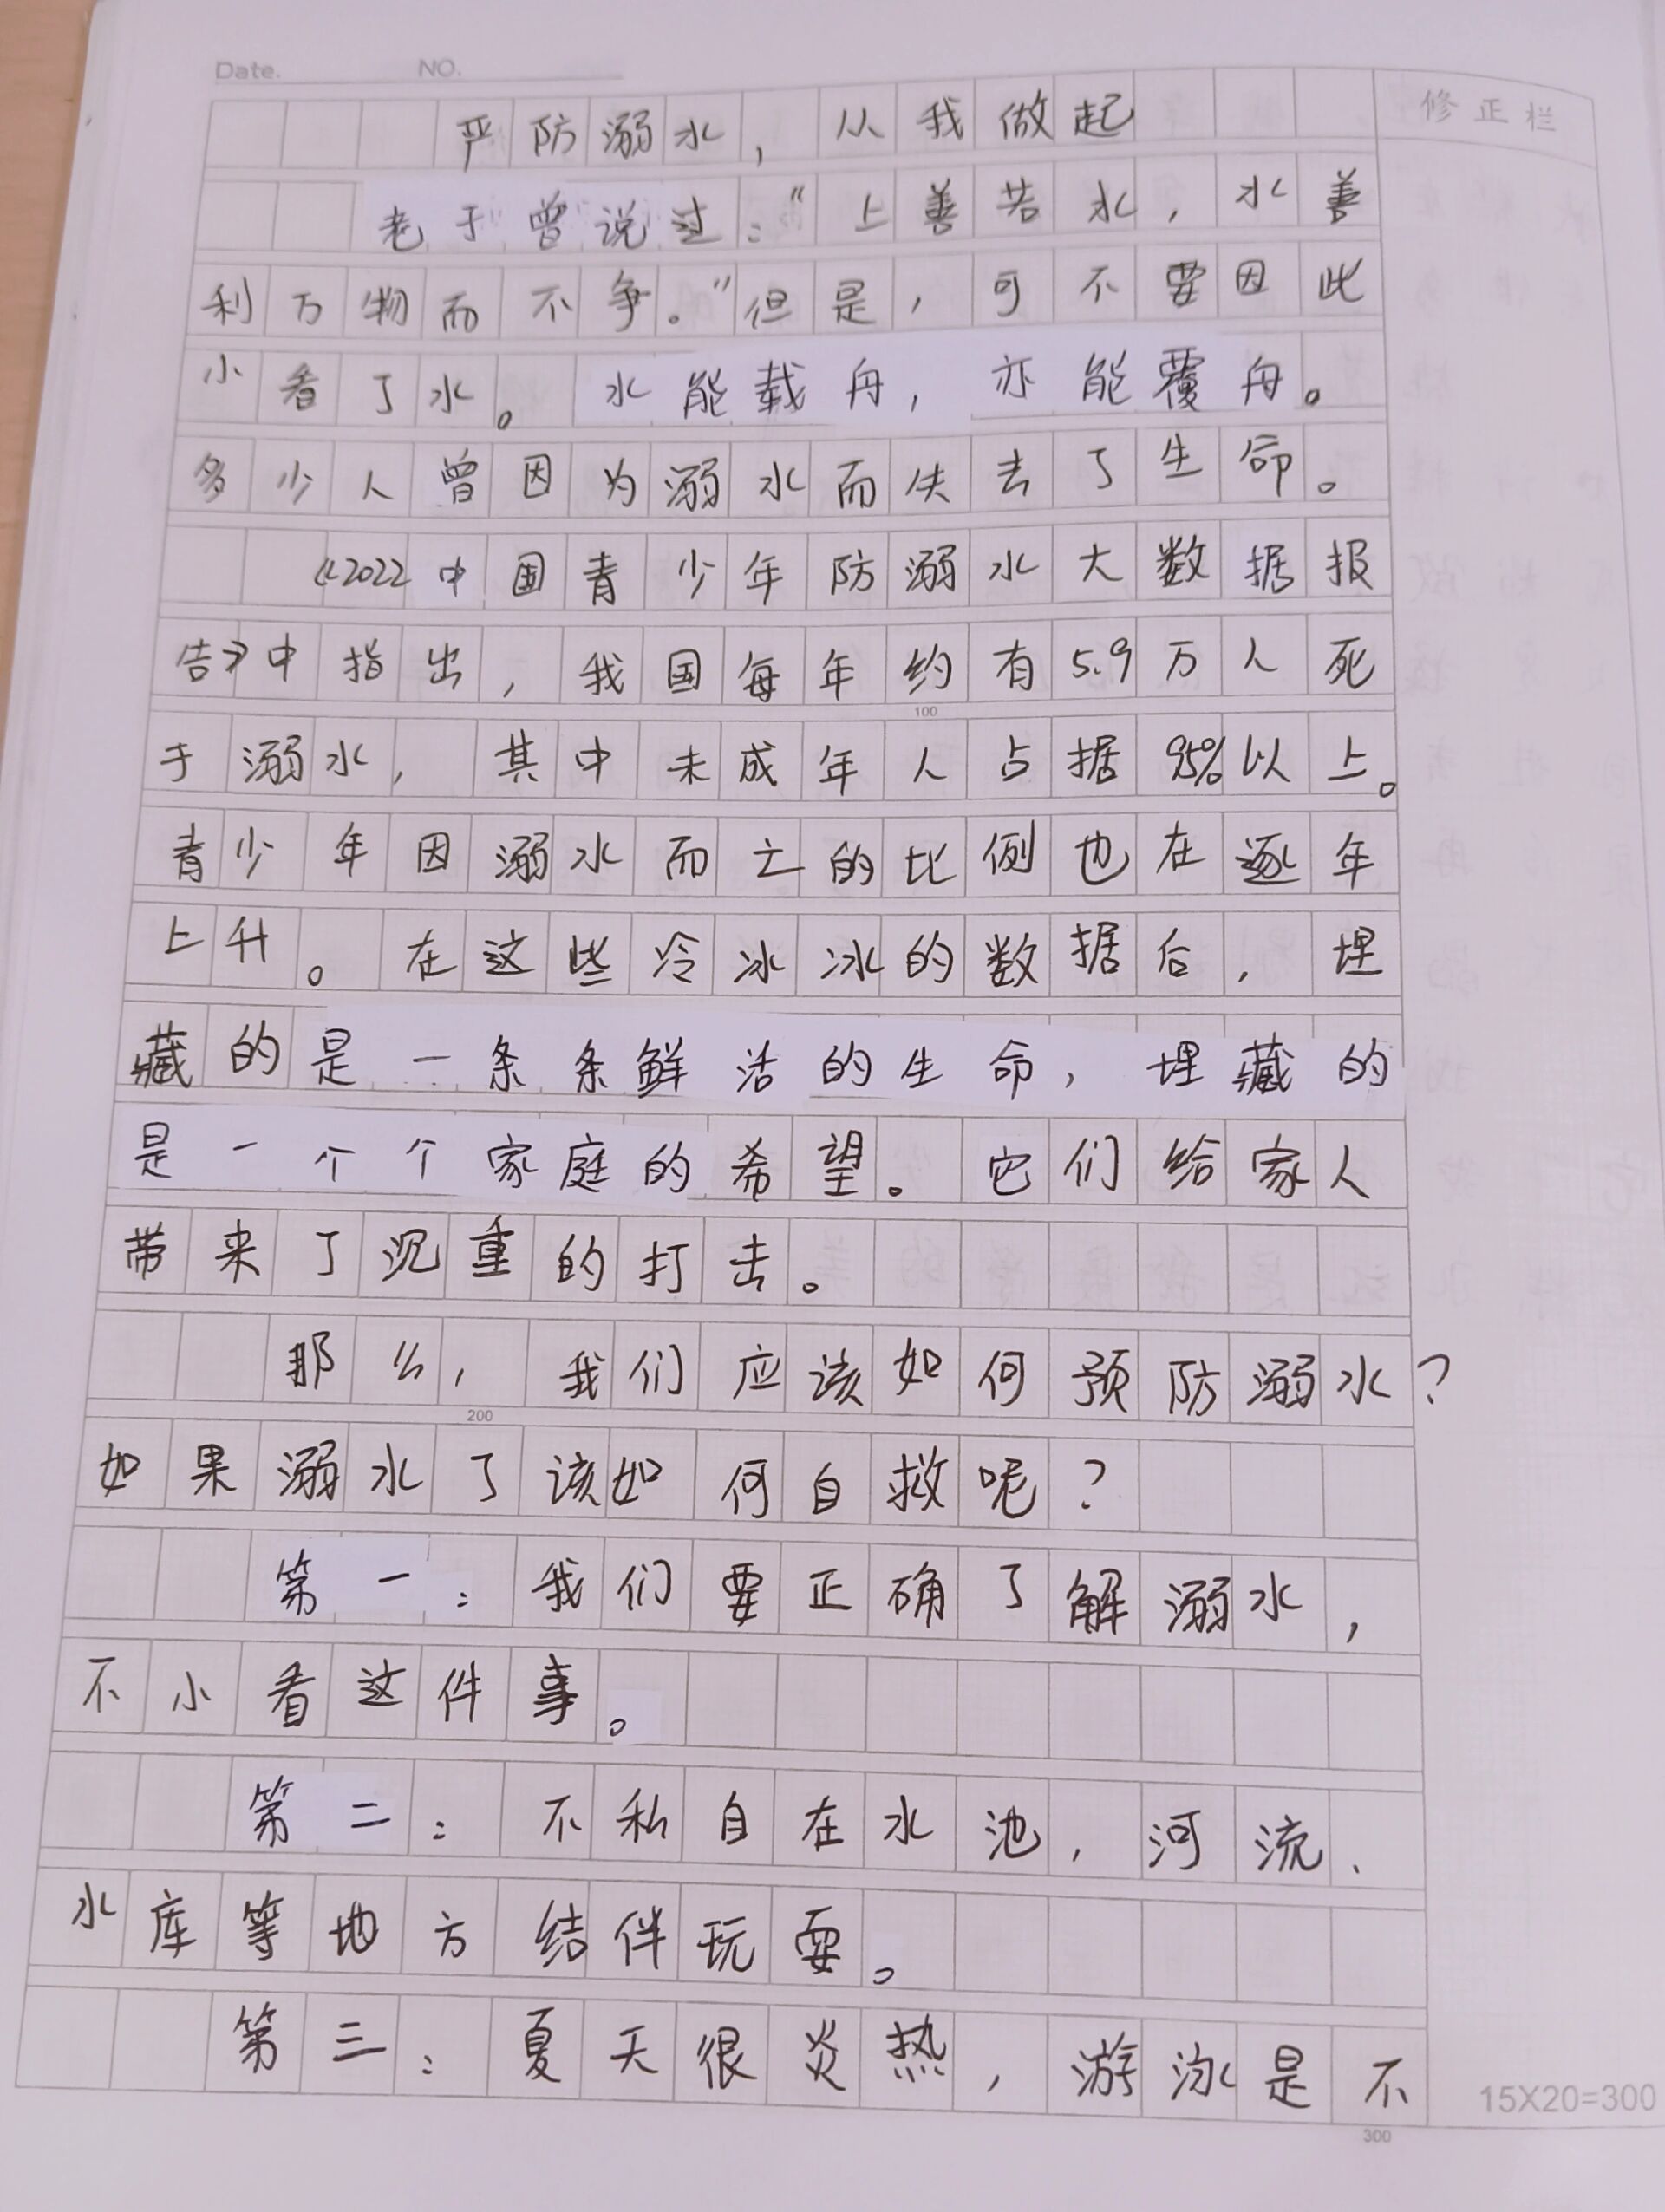 Date. NO.
严防溺水，从我做起
修正栏
老子曾说过："上善若水，水善
利万物而不争。"但是，可不要因此
小看了水。水能载舟，亦能覆舟。
多少人曾因为溺水而失去了生命。
《2022中国青少年防溺水大数据报
告》中指出，我国每年约有5.9万人死
于溺水，其中未成年人占据95%以上。
青少年因溺水而亡的比例也在逐年
上升。在这些冷冰冰的数据后，埋
藏的是一条条鲜活的生命，埋藏的
是一个个家庭的希望。它们给家人
带来了沉重的打击。
那么，我们应该如何预防溺水？
如果溺水了该如何自救呢？
第一：我们要正确了解溺水，
不小看这件事。
第二：不私自在水池，河流、
水库等地方结伴玩耍。
第三：夏天很炎热，游泳是不
100
200
300
15X20=300